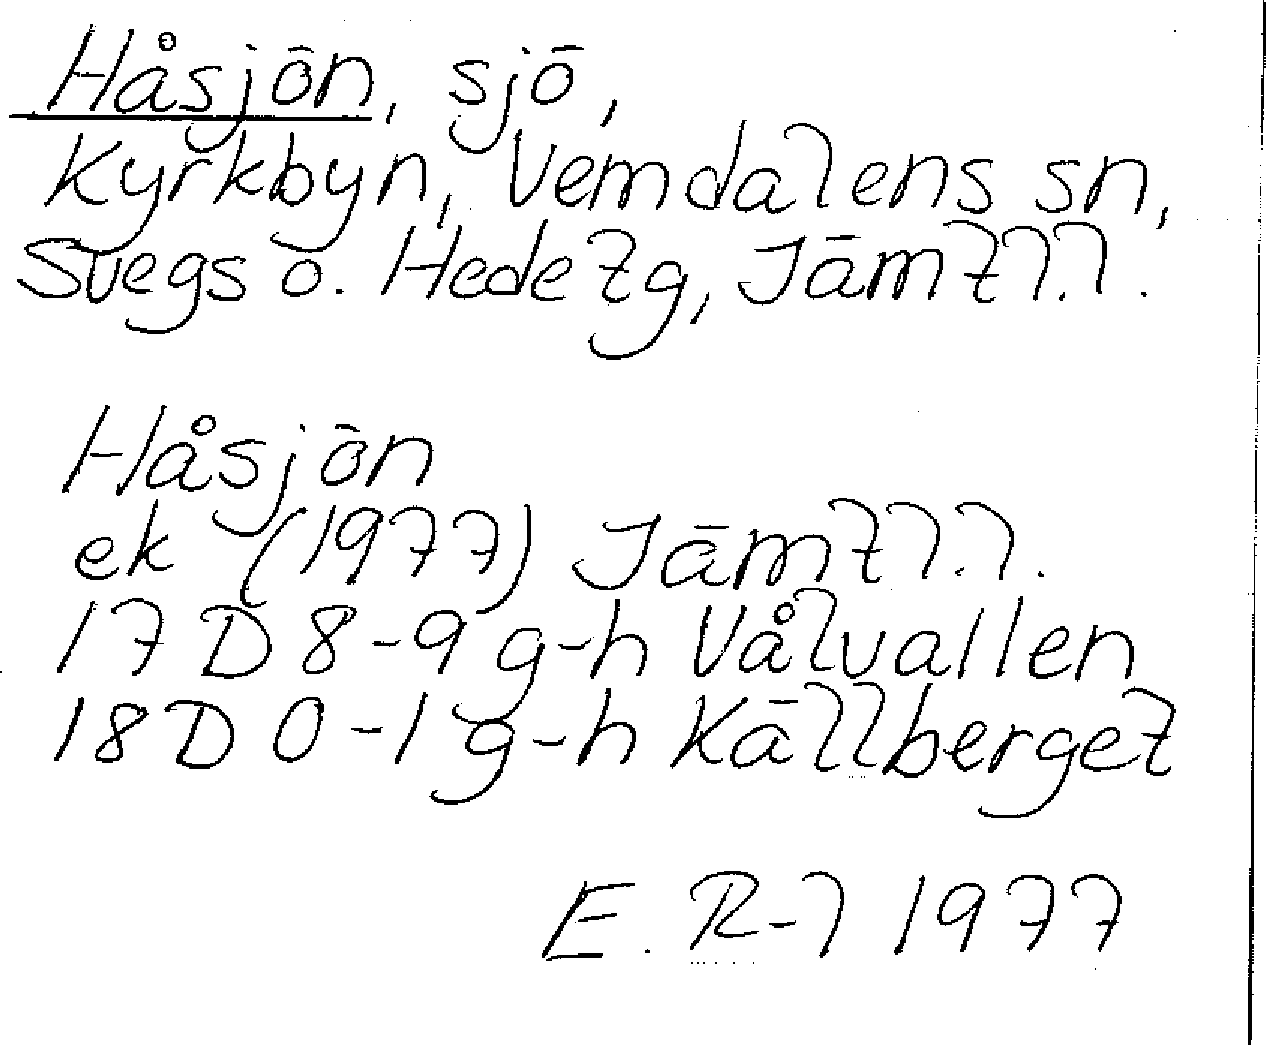 Håsjön, sjö,
Kyrkbyn, Vemdalens sn,
Svegs o. Hede tg, Jämtl.l.
Håsjön
ek (1977) Jämtl.l.
17D 8-9 g-h Vålvallen
18D 0-1 g-h Källberget
E. R-l 1977